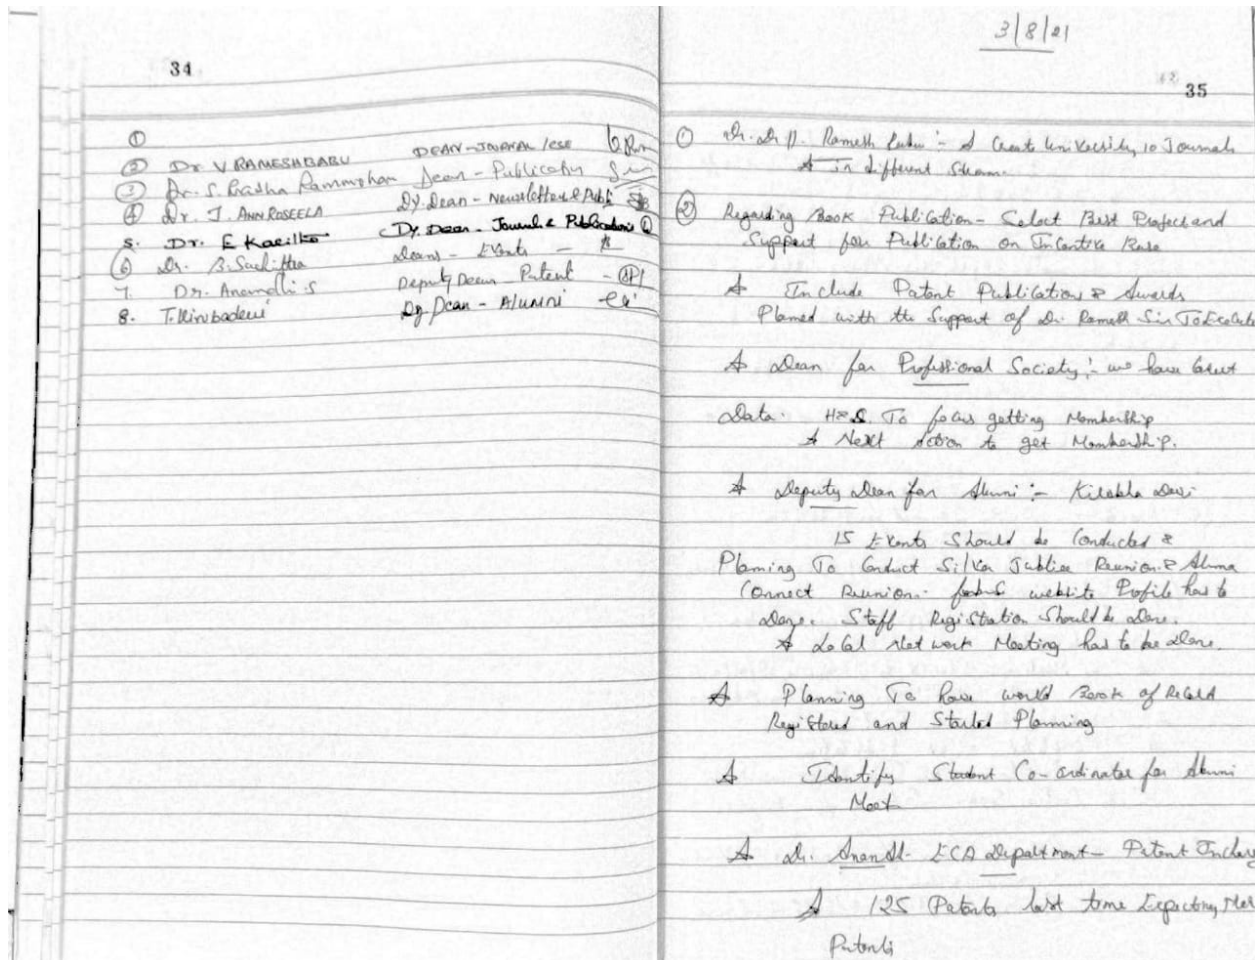 34
①
② Dr V RAMESHBABU DEAN-JOURNAL/CSE
③ Dr. S. Radha Rammohan Dean - Publication
④ Dr. J. ANN ROSEELA Dy. Dean - Newsletter & Publi
5. Dr. E Dy. Dean - Journal & Publications
⑥ Dr. B. Suchithra Deans - Events -
7. Dr. Anandhi S Deputy Dean - Patent -
8. T. Kirubadevi Dy. Dean - Alumni -
3/8/21
35
① Dr. Ramesh Babu :- A Create University 10 Journals
A in different Stream.
② Regarding Book Publication - Select Best Project and
Support for Publication on Incentive Base
A Include Patent Publications & Awards
Planned with the Support of Dr. Ramesh Sir To
A Dean for Professional Society :- we have
Data. To focus getting Membership
A Next Action to get Membership.
A Deputy Dean for Alumni :- Devi
15 Events Should be Conducted &
Planning To Conduct Silver Jubilee Reunion & Aluma
Connect Reunion. website Profile has to
Done. Staff Registration Should be Done.
A Local Net work Meeting has to be Done.
A Planning To have world Book of Record
Registered and Started Planning
A Identify Student Co-ordinator for Alumni
Meet
A Dr. Anandhi - Department - Patent Incharg
A 125 Patents last time Expecting
Patents